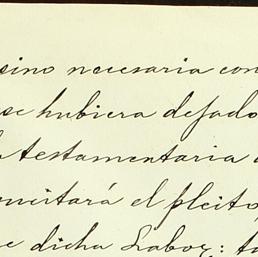 sino necesaria con
se hubiera dejado
testamentaria
citará el pleito
dicha Labor; ta